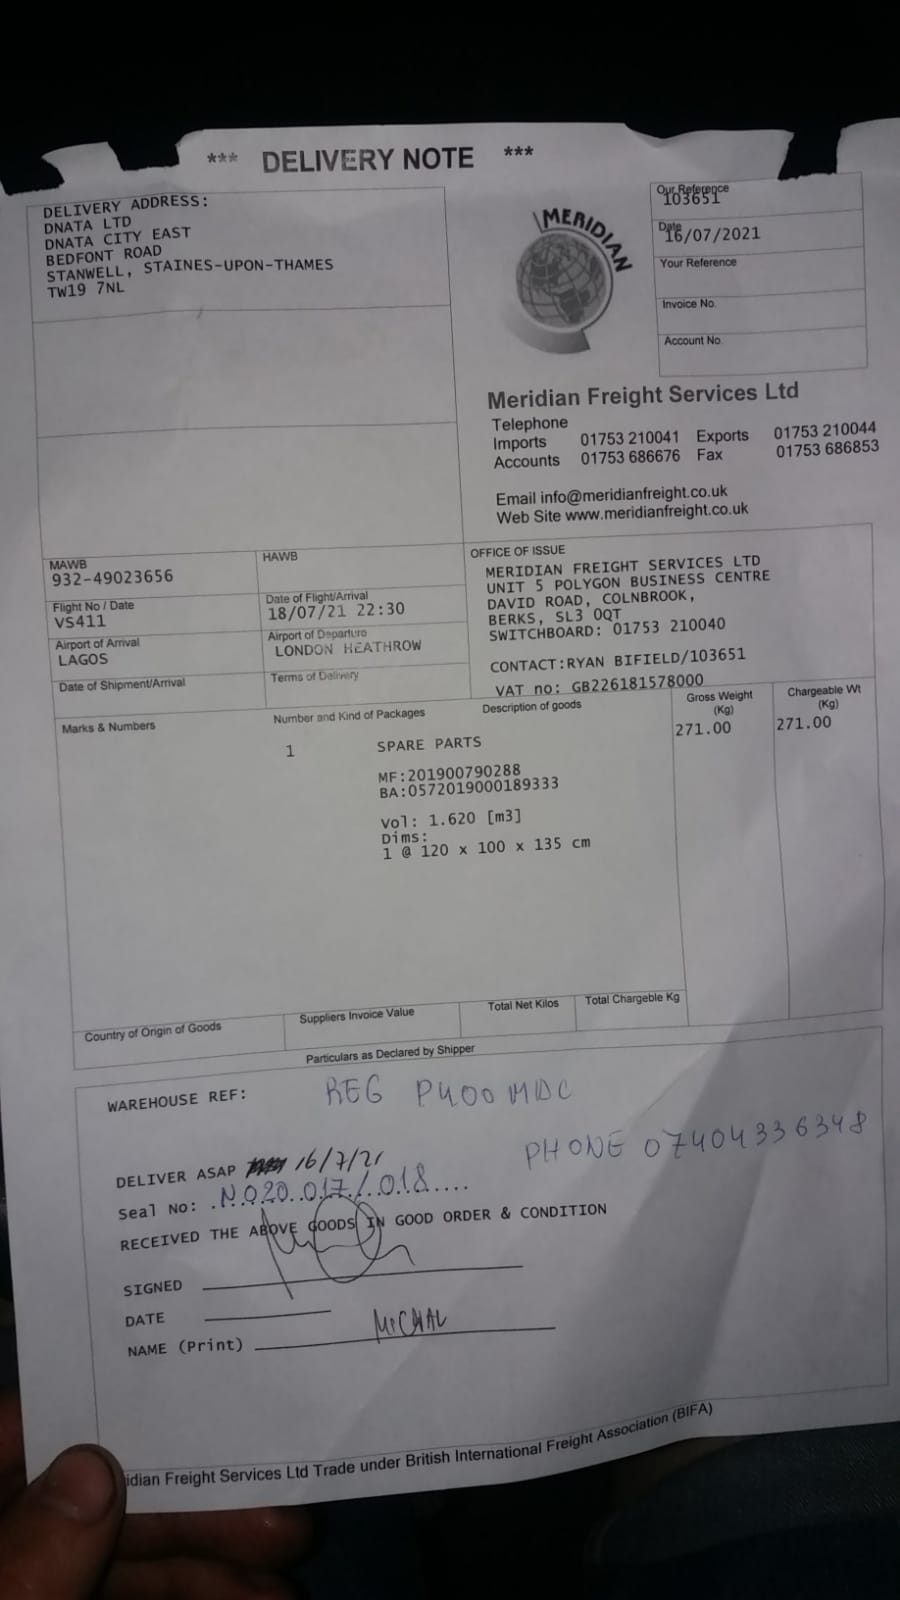 *** DELIVERY NOTE ***
DELIVERY ADDRESS:
DNATA LTD
DNATA CITY EAST
BEDFONT ROAD
STANWELL, STAINES-UPON-THAMES
TW19 7NL
MERIDIAN
Our Reference
103651
Date
16/07/2021
Your Reference
Invoice No.
Account No.
Meridian Freight Services Ltd
Telephone
Imports 01753 210041 Exports 01753 210044
Accounts 01753 686676 Fax 01753 686853
Email info@meridianfreight.co.uk
Web Site www.meridianfreight.co.uk
MAWB
932-49023656
HAWB
Flight No / Date
VS411
Date of Flight/Arrival
18/07/21 22:30
Airport of Arrival
LAGOS
Airport of Departure
LONDON HEATHROW
Date of Shipment/Arrival
Terms of Delivery
OFFICE OF ISSUE
MERIDIAN FREIGHT SERVICES LTD
UNIT 5 POLYGON BUSINESS CENTRE
DAVID ROAD, COLNBROOK,
BERKS, SL3 0QT
SWITCHBOARD: 01753 210040
CONTACT:RYAN BIFIELD/103651
VAT no: GB226181578000
Marks & Numbers
Number and Kind of Packages
Description of goods
Gross Weight
(Kg)
Chargeable Wt
(Kg)
1 SPARE PARTS 271.00 271.00
MF:201900790288
BA:0572019000189333
Vol: 1.620 [m3]
Dims:
1 @ 120 x 100 x 135 cm
Country of Origin of Goods
Suppliers Invoice Value
Total Net Kilos
Total Chargeble Kg
Particulars as Declared by Shipper
WAREHOUSE REF: REG P400MDC
PHONE 07404336348
DELIVER ASAP 16/7/21
Seal No: .N020.017/.018....
RECEIVED THE ABOVE GOODS IN GOOD ORDER & CONDITION
SIGNED
DATE
NAME (Print) MICHAL
idian Freight Services Ltd Trade under British International Freight Association (BIFA)